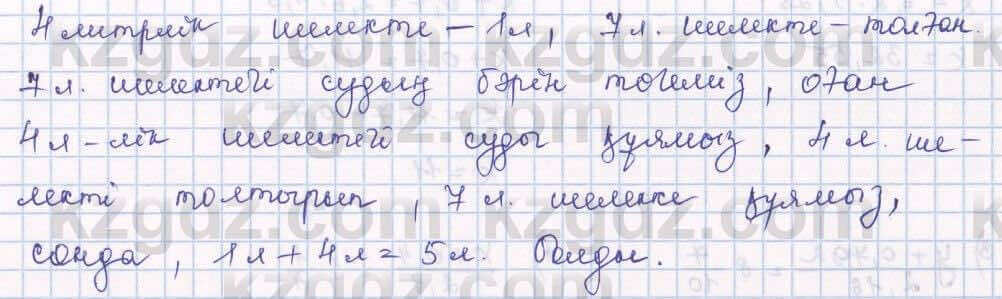 4 литрлік шелекте – 1л, 7 л. шелекте – толған.
7 л. шелектегі судың бәрін төгеміз, оған
4 л – лік шелектегі суды құямыз, 4 л. ше–
лекті толтырып, 7 л. шелекке құямыз,
сонда, 1л + 4л = 5 л. болды.